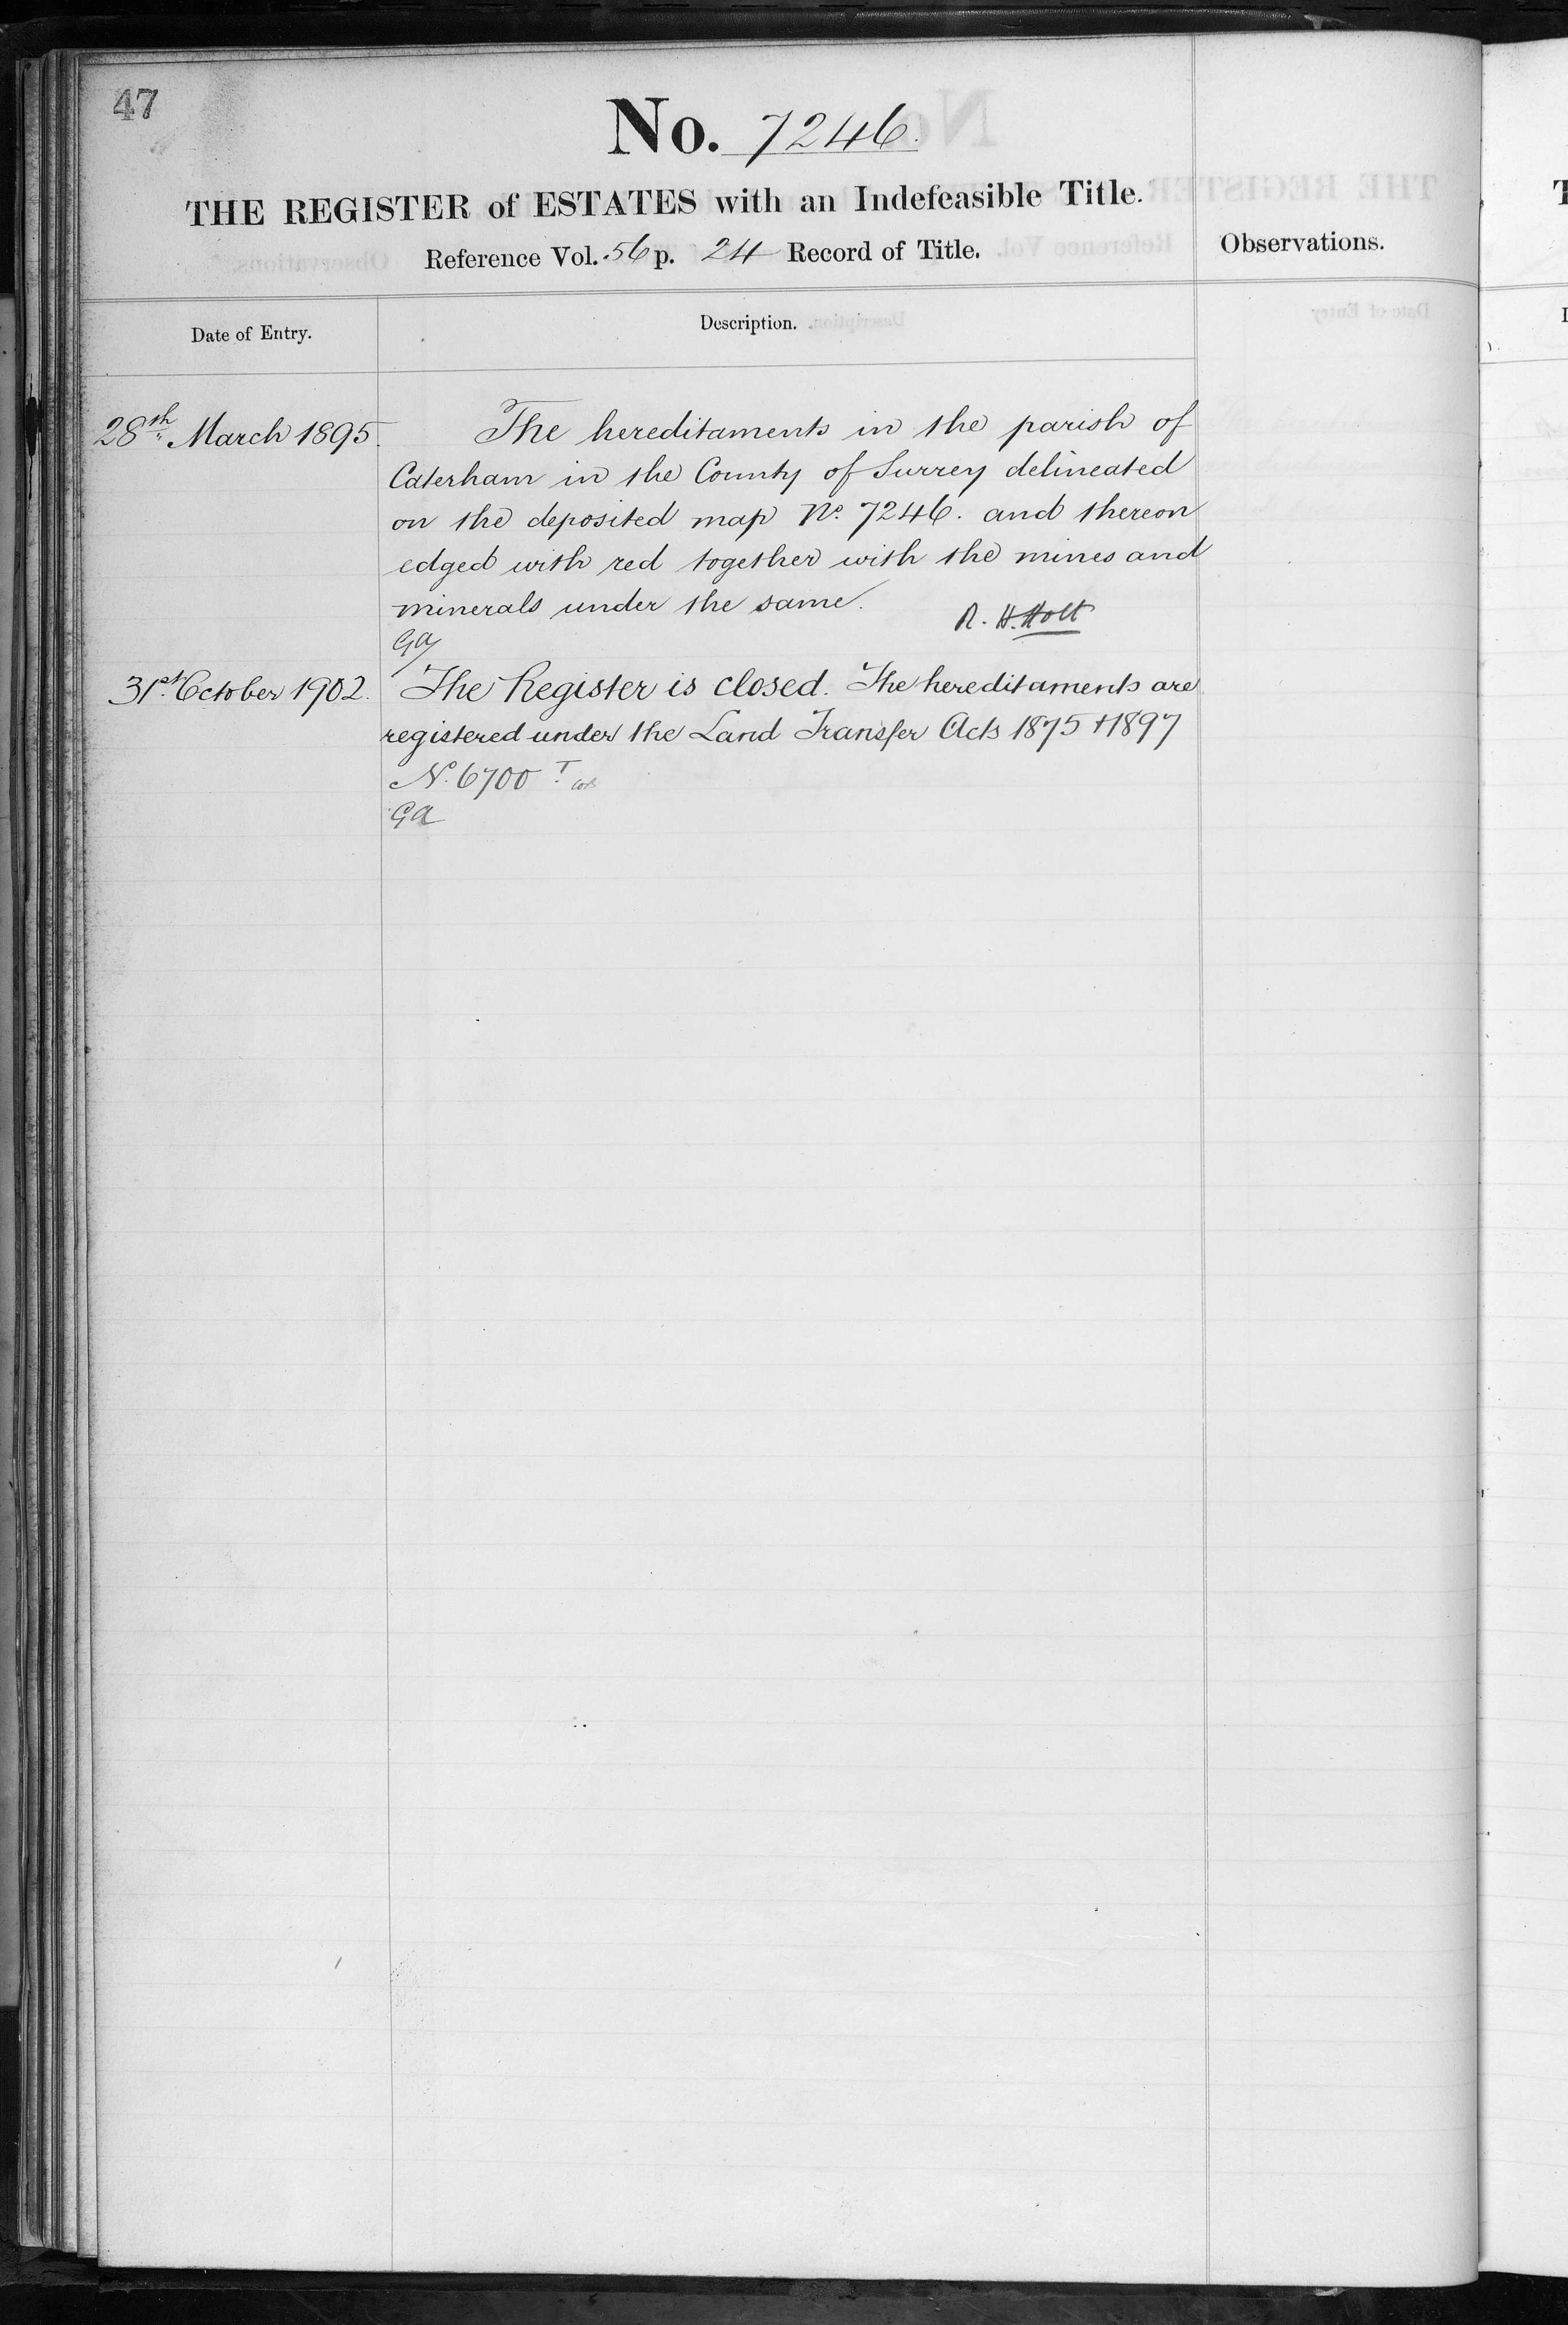 47
No. 7246.
THE REGISTER of ESTATES with an Indefeasible Title.
Reference Vol. 56 p. 24 Record of Title.
Observations.
Date of Entry.
Description.
28th March 1895.
The hereditaments in the parish of
Caterham in the County of Surrey delineated
on the deposited map No. 7246. and thereon
edged with red together with the mines and
minerals under the same.
R. H. Holt
GA
31st October 1902.
The Register is closed. The hereditaments are
registered under the Land Transfer Acts 1875 + 1897
No. 6700
GA